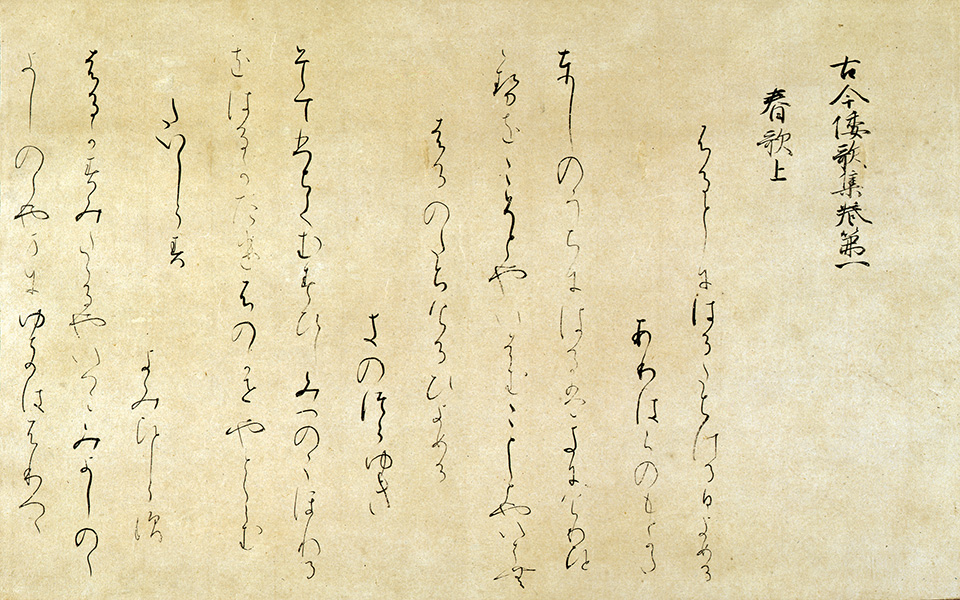 古今倭歌集巻第一
春歌上
ふるとしにはるたちける日よめる
ありはらのもとかた
としのうちにはるはきにけりひと
ゝせをこそとやいはむことしとやいはむ
はるのたちけるひよめる
きのつらゆき
そてひちてむすひしみつのこほれる
をはるたつけふのかせやとくらむ
たいしらす
よみひとしらす
はるかすみたてるやいつこみよしのゝ
よしのゝやまにゆきはふりつゝ